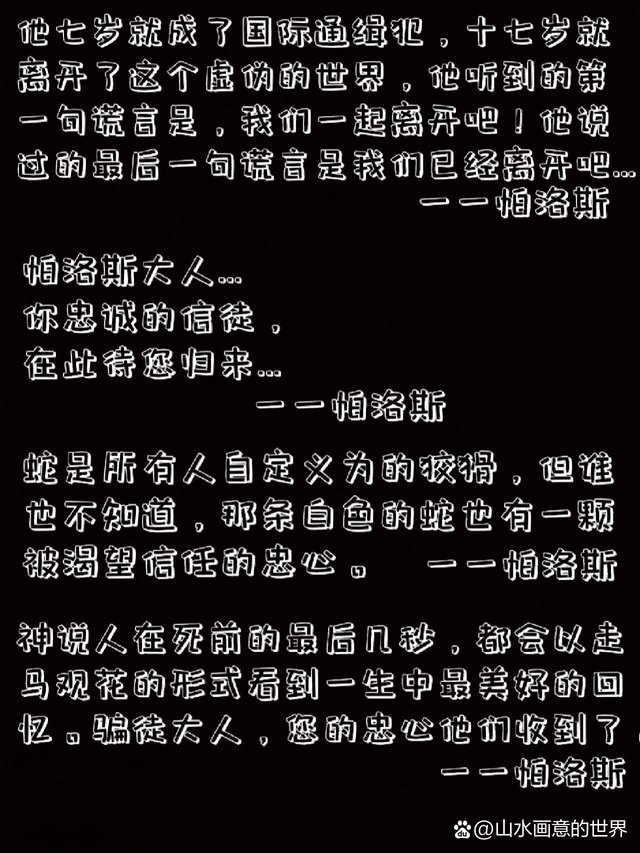 他七岁就成了国际通缉犯，十七岁就
离开了这个虚伪的世界，他听到的第
一句谎言是，我们一起离开吧！他说
过的最后一句谎言是我们已经离开吧…
一一帕洛斯
帕洛斯大人…
你忠诚的信徒，
在此待您归来…
一一帕洛斯
蛇是所有人自定义为的狡猾，但谁
也不知道，那条白色的蛇也有一颗
被渴望信任的忠心。 一一帕洛斯
神说人在死前的最后几秒，都会以走
马观花的形式看到一生中最美好的回
忆。骗徒大人，您的忠心他们收到了。
一一帕洛斯
@山水画意的世界